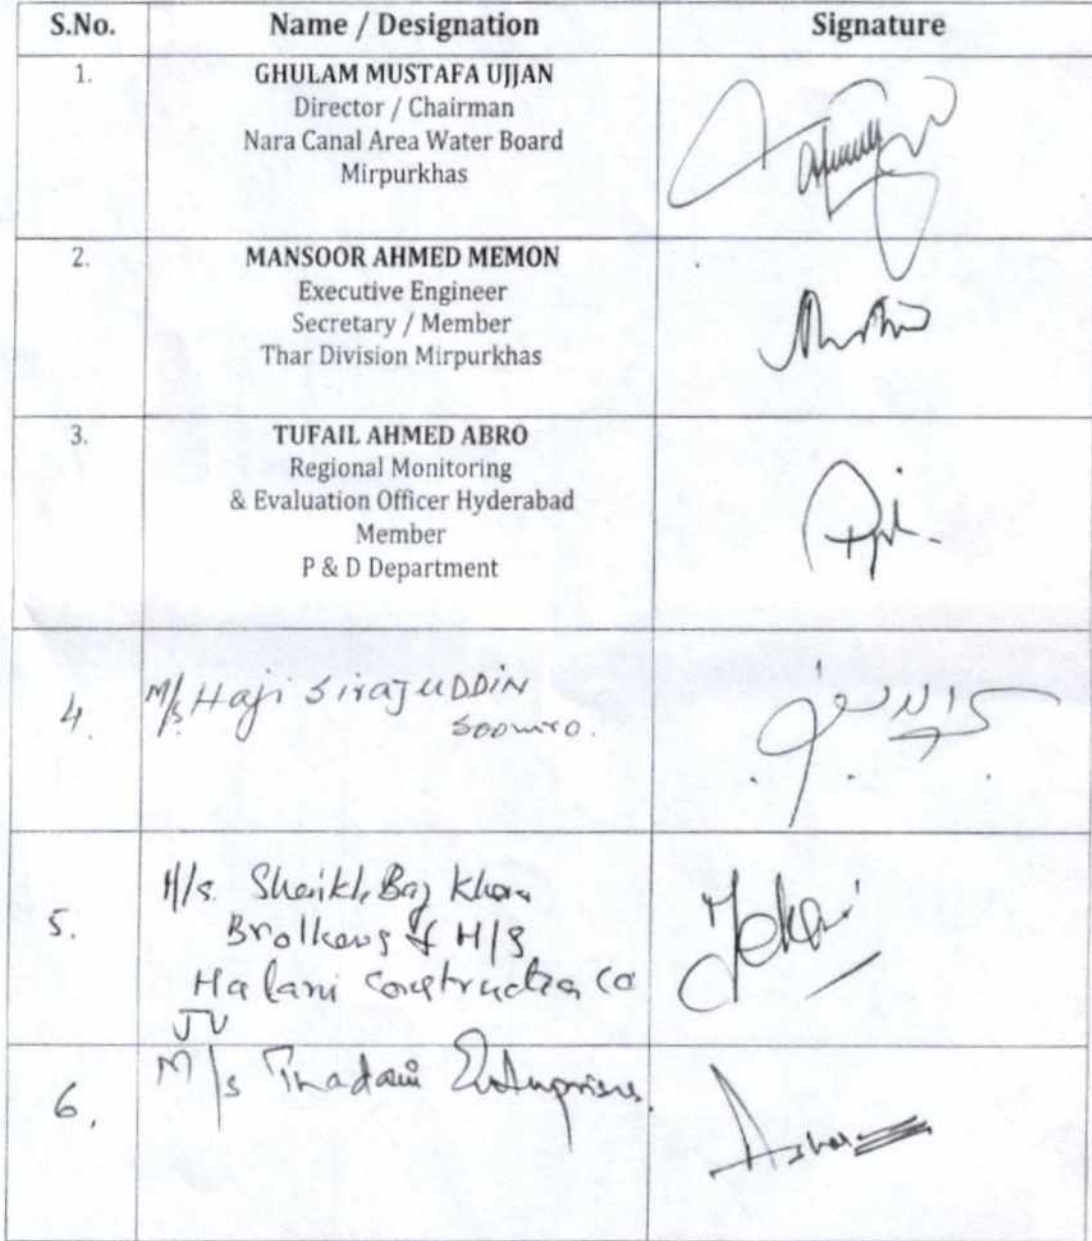 S.No. Name / Designation Signature
1. GHULAM MUSTAFA UJJAN
Director / Chairman
Nara Canal Area Water Board
Mirpurkhas
2. MANSOOR AHMED MEMON
Executive Engineer
Secretary / Member
Thar Division Mirpurkhas
3. TUFAIL AHMED ABRO
Regional Monitoring
& Evaluation Officer Hyderabad
Member
P & D Department
4. M/s. Haji SirajUDDIN
Soomro.
5. M/s. Sheikh Baz Khan
& M/s
Halani Construction Co
JV
6. M/s Enterprises.